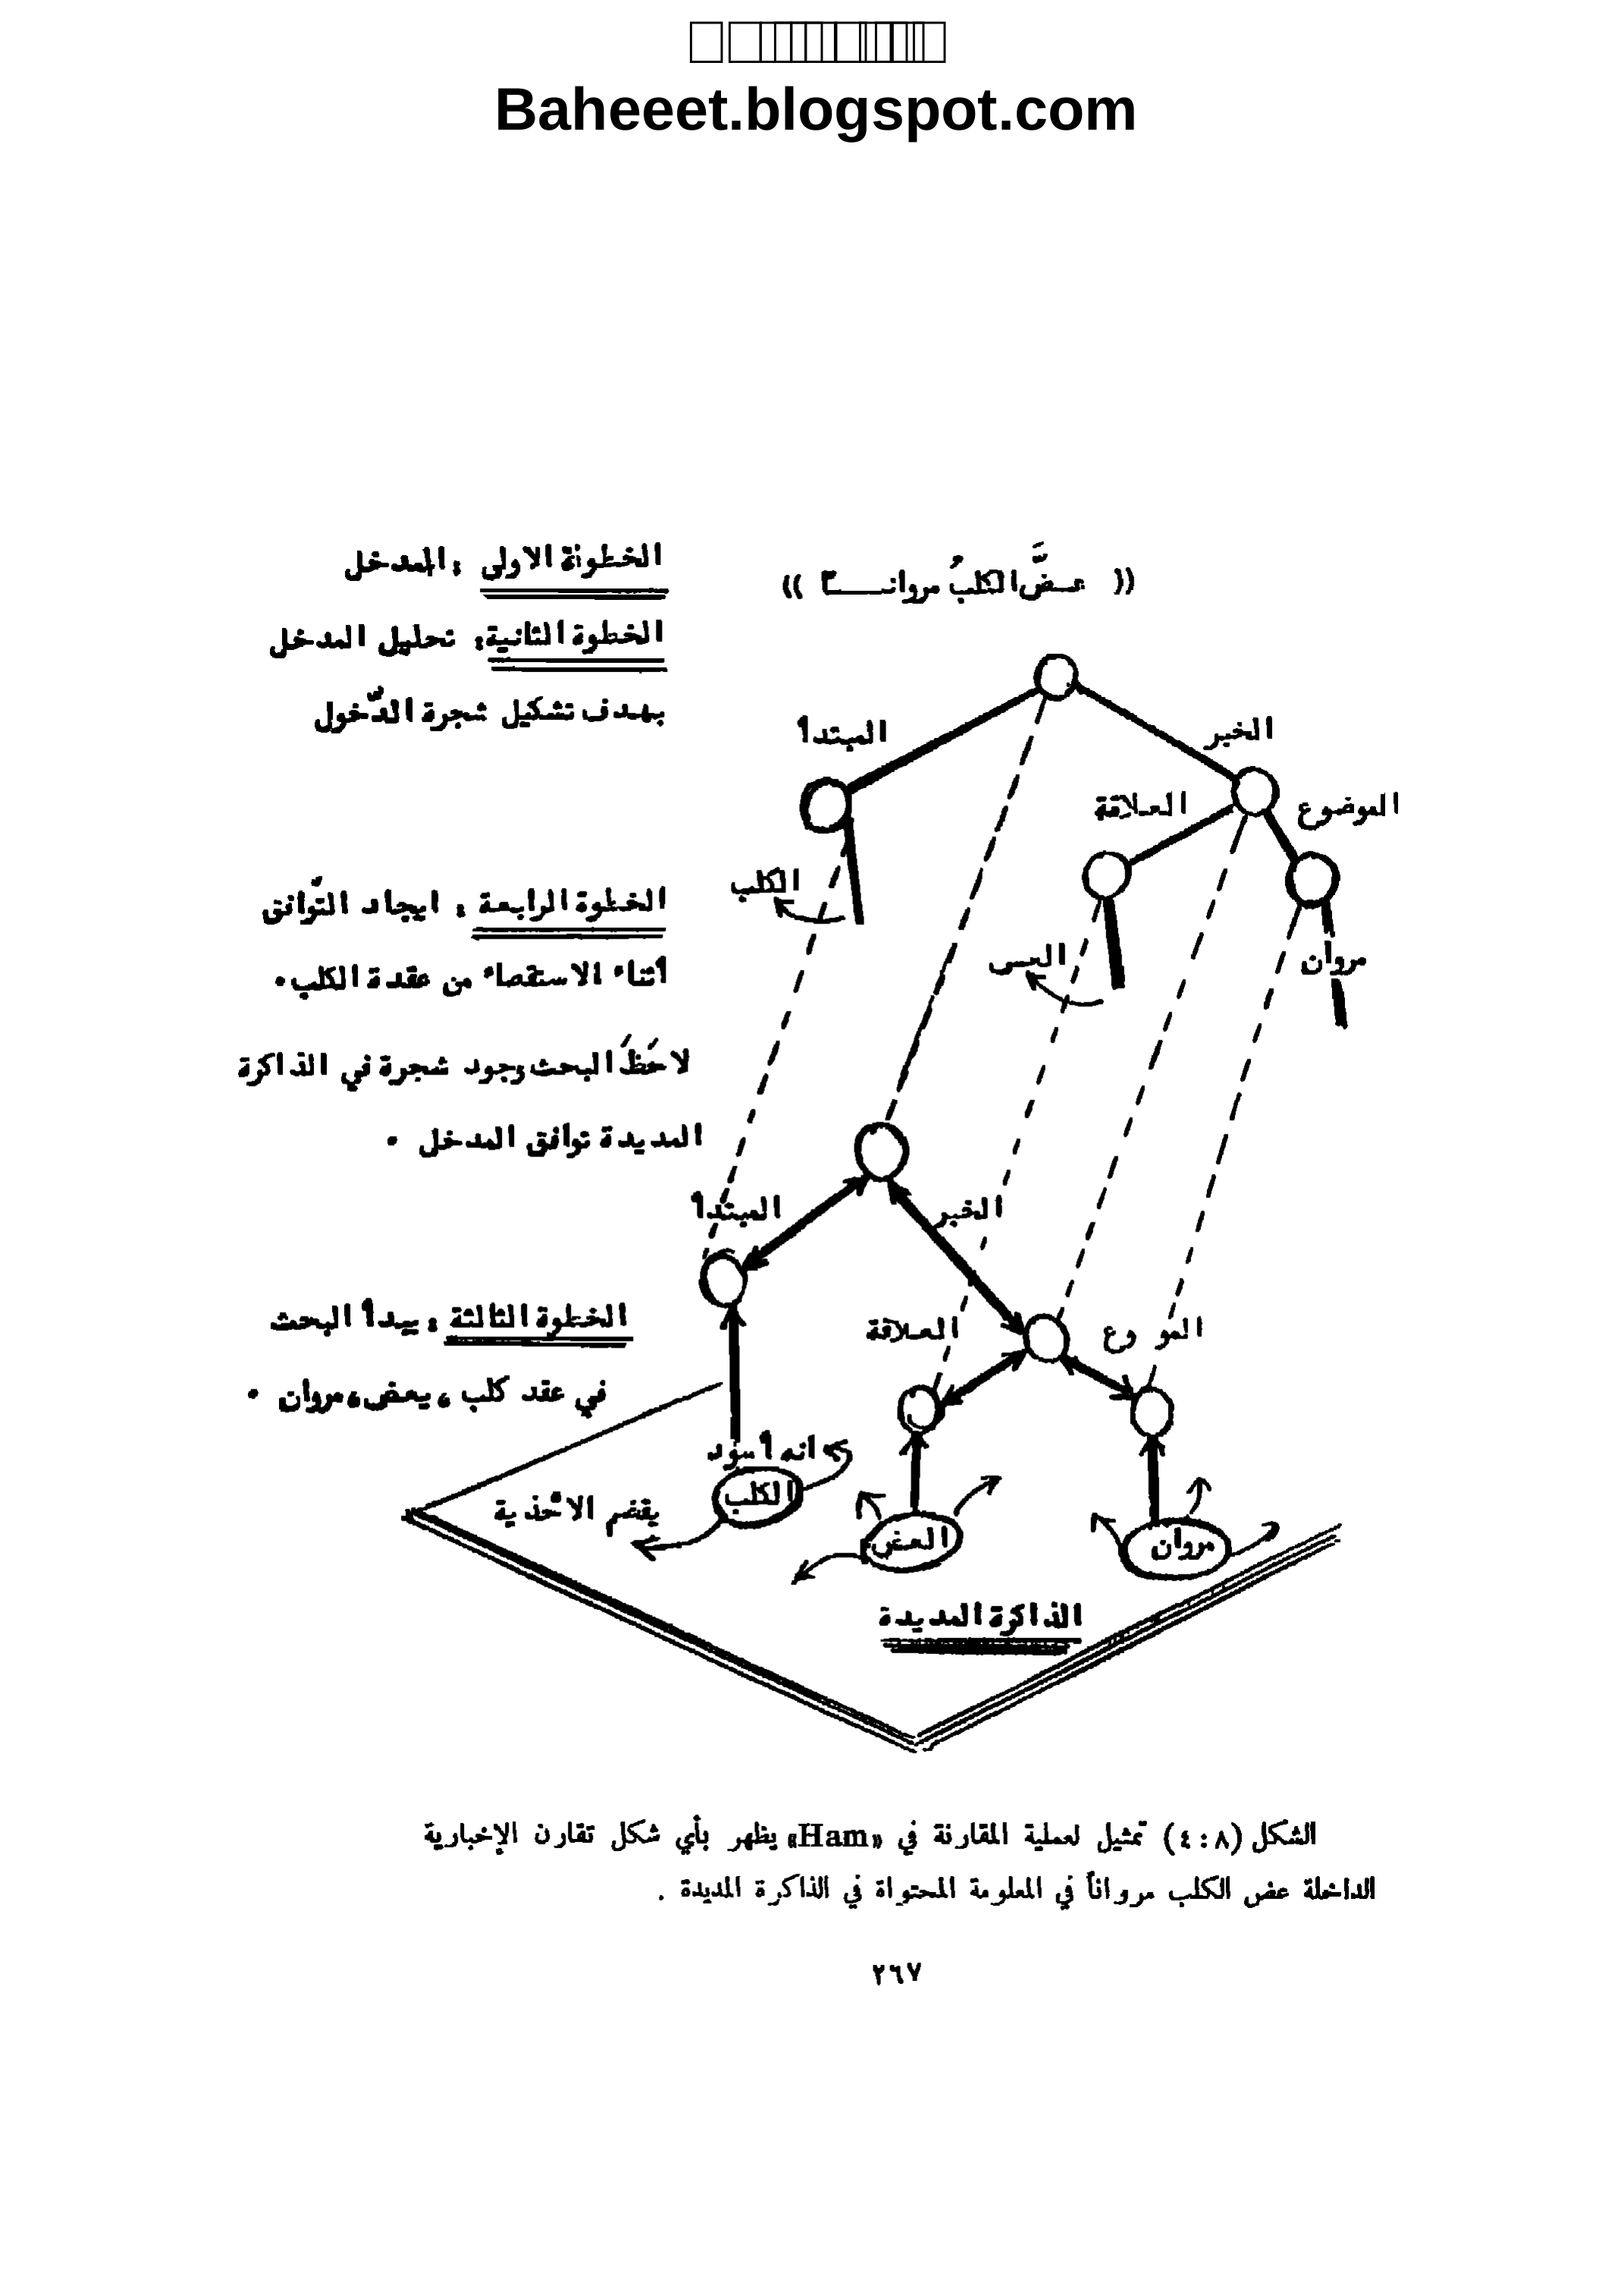 Baheeet.blogspot.com
(( عـضَّ الكلبُ مروانـــــاً ))
الخطوة الاولى : المدخل
الخطوة الثانية : تحليل المدخل
بهدف تشكيل شجرة الدّخول
المبتدأ
الخبر
العلاقة
الموضوع
الكلب
مروان
الخطوة الرابعة : ايجاد التّوافق
أثناء الاستقصاء من عقدة الكلب .
لاحَظَ البحث وجود شجرة في الذاكرة
المديدة توافق المدخل .
المبتدأ
الخبر
العلاقة
المو وع
الخطوة الثالثة : يبدأ البحث
في عقد كلب ، يعض ، مروان .
انه أسود
الكلب
يقضم الأحذية
العض
مروان
الذاكرة المديدة
الشكل (٨ : ٤) تمثيل لعملية المقارنة في «Ham» يظهر بأي شكل تقارن الإخبارية
الداخلة عض الكلب مرواناً في المعلومة المحتواة في الذاكرة المديدة .
٢٦٧